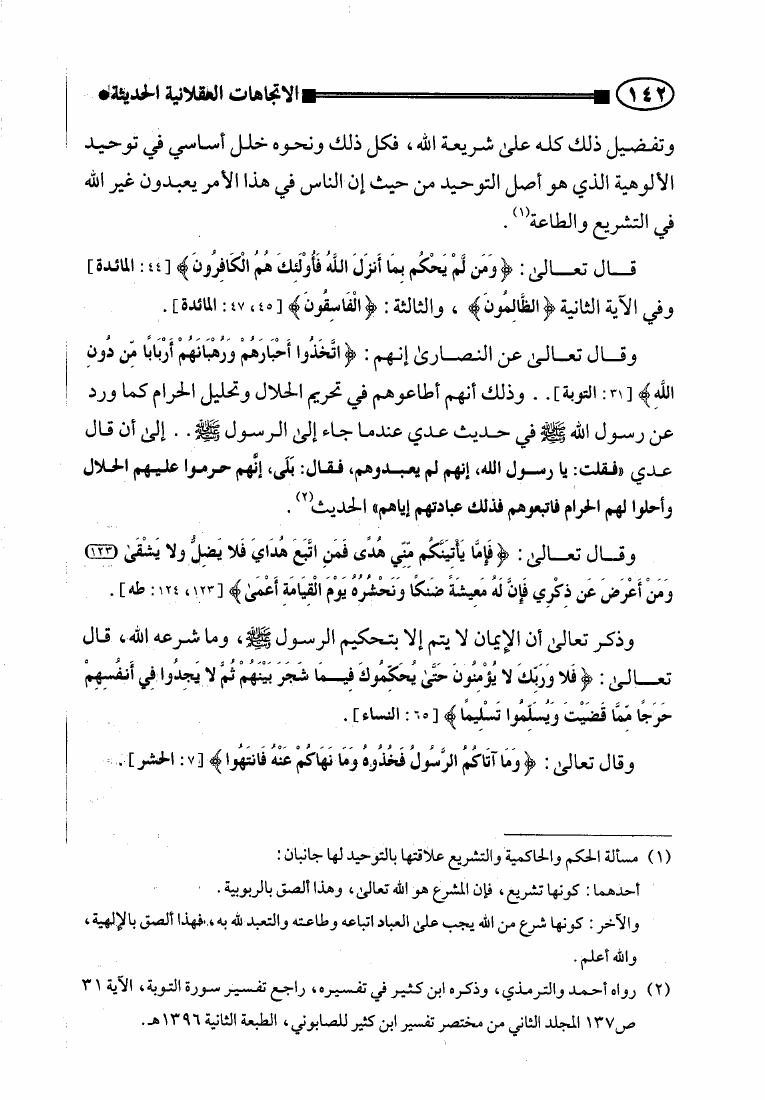 ١٤٢ الاتجاهات العقلانية الحديثة
وتفضيل ذلك كله على شريعة الله، فكل ذلك ونحوه خلل أساسي في توحيد
الألوهية الذي هو أصل التوحيد من حيث إن الناس في هذا الأمر يعبدون غير الله
في التشريع والطاعة(١).
قـال تعـالى: ﴿وَمَن لَّمْ يَحْكُم بِمَا أَنزَلَ اللَّهُ فَأُوْلَئِكَ هُمُ الْكَافِرُونَ﴾ [٤٤: المائدة]
وفي الآية الثانية ﴿الظَّالِمُونَ﴾، والثالثة: ﴿الْفَاسِقُونَ﴾ [٤٥، ٤٧: المائدة].
وقـال تعالى عن النصـارى إنـهم: ﴿اتَّخَذُوا أَحْبَارَهُمْ وَرُهْبَانَهُمْ أَرْبَابًا مِّن دُونِ
اللَّهِ﴾ [٣١: التوبة].. وذلك أنهم أطاعوهم في تحريم الحلال وتحليل الحرام كما ورد
عن رسول الله ﷺ في حديث عدي عندما جاء إلى الرسول ﷺ.. إلى أن قال
عدي «فقلت: يا رسول الله، إنهم لم يعبدوهم، فقال: بَلَى، إنَّهم حرموا عليهم الحلال
وأحلوا لهم الحرام فاتبعوهم فذلك عبادتهم إياهم» الحديث(٢).
وقـال تعـالى: ﴿فَإِمَّا يَأْتِيَنَّكُم مِّنِّي هُدًى فَمَنِ اتَّبَعَ هُدَايَ فَلا يَضِلُّ وَلا يَشْقَىٰ (١٢٣)
وَمَنْ أَعْرَضَ عَن ذِكْرِي فَإِنَّ لَهُ مَعِيشَةً ضَنكًا وَنَحْشُرُهُ يَوْمَ الْقِيَامَةِ أَعْمَىٰ﴾ [١٢٣، ١٢٤: طه].
وذكر تعالى أن الإيمان لا يتم إلا بتحكيم الرسول ﷺ، وما شرعه الله، قال
تعـالى: ﴿فَلا وَرَبِّكَ لا يُؤْمِنُونَ حَتَّىٰ يُحَكِّمُوكَ فِيمَا شَجَرَ بَيْنَهُمْ ثُمَّ لا يَجِدُوا فِي أَنفُسِهِمْ
حَرَجًا مِّمَّا قَضَيْتَ وَيُسَلِّمُوا تَسْلِيمًا﴾ [٦٥: النساء].
وقال تعالى: ﴿وَمَا آتَاكُمُ الرَّسُولُ فَخُذُوهُ وَمَا نَهَاكُمْ عَنْهُ فَانتَهُوا﴾ [٧: الحشر].
(١) مسألة الحكم والحاكمية والتشريع علاقتها بالتوحيد لها جانبان:
أحدهما: كونها تشريع، فإن المشرع هو الله تعالى، وهذا ألصق بالربوبية.
والآخر: كونها شرع من الله يجب على العباد اتباعه وطاعته والتعبد لله به، فهذا ألصق بالإلهية،
والله أعلم.
(٢) رواه أحمد والترمذي، وذكره ابن كثير في تفسيره، راجع تفسير سورة التوبة، الآية ٣١
ص١٣٧ المجلد الثاني من مختصر تفسير ابن كثير للصابوني، الطبعة الثانية ١٣٩٦هـ.